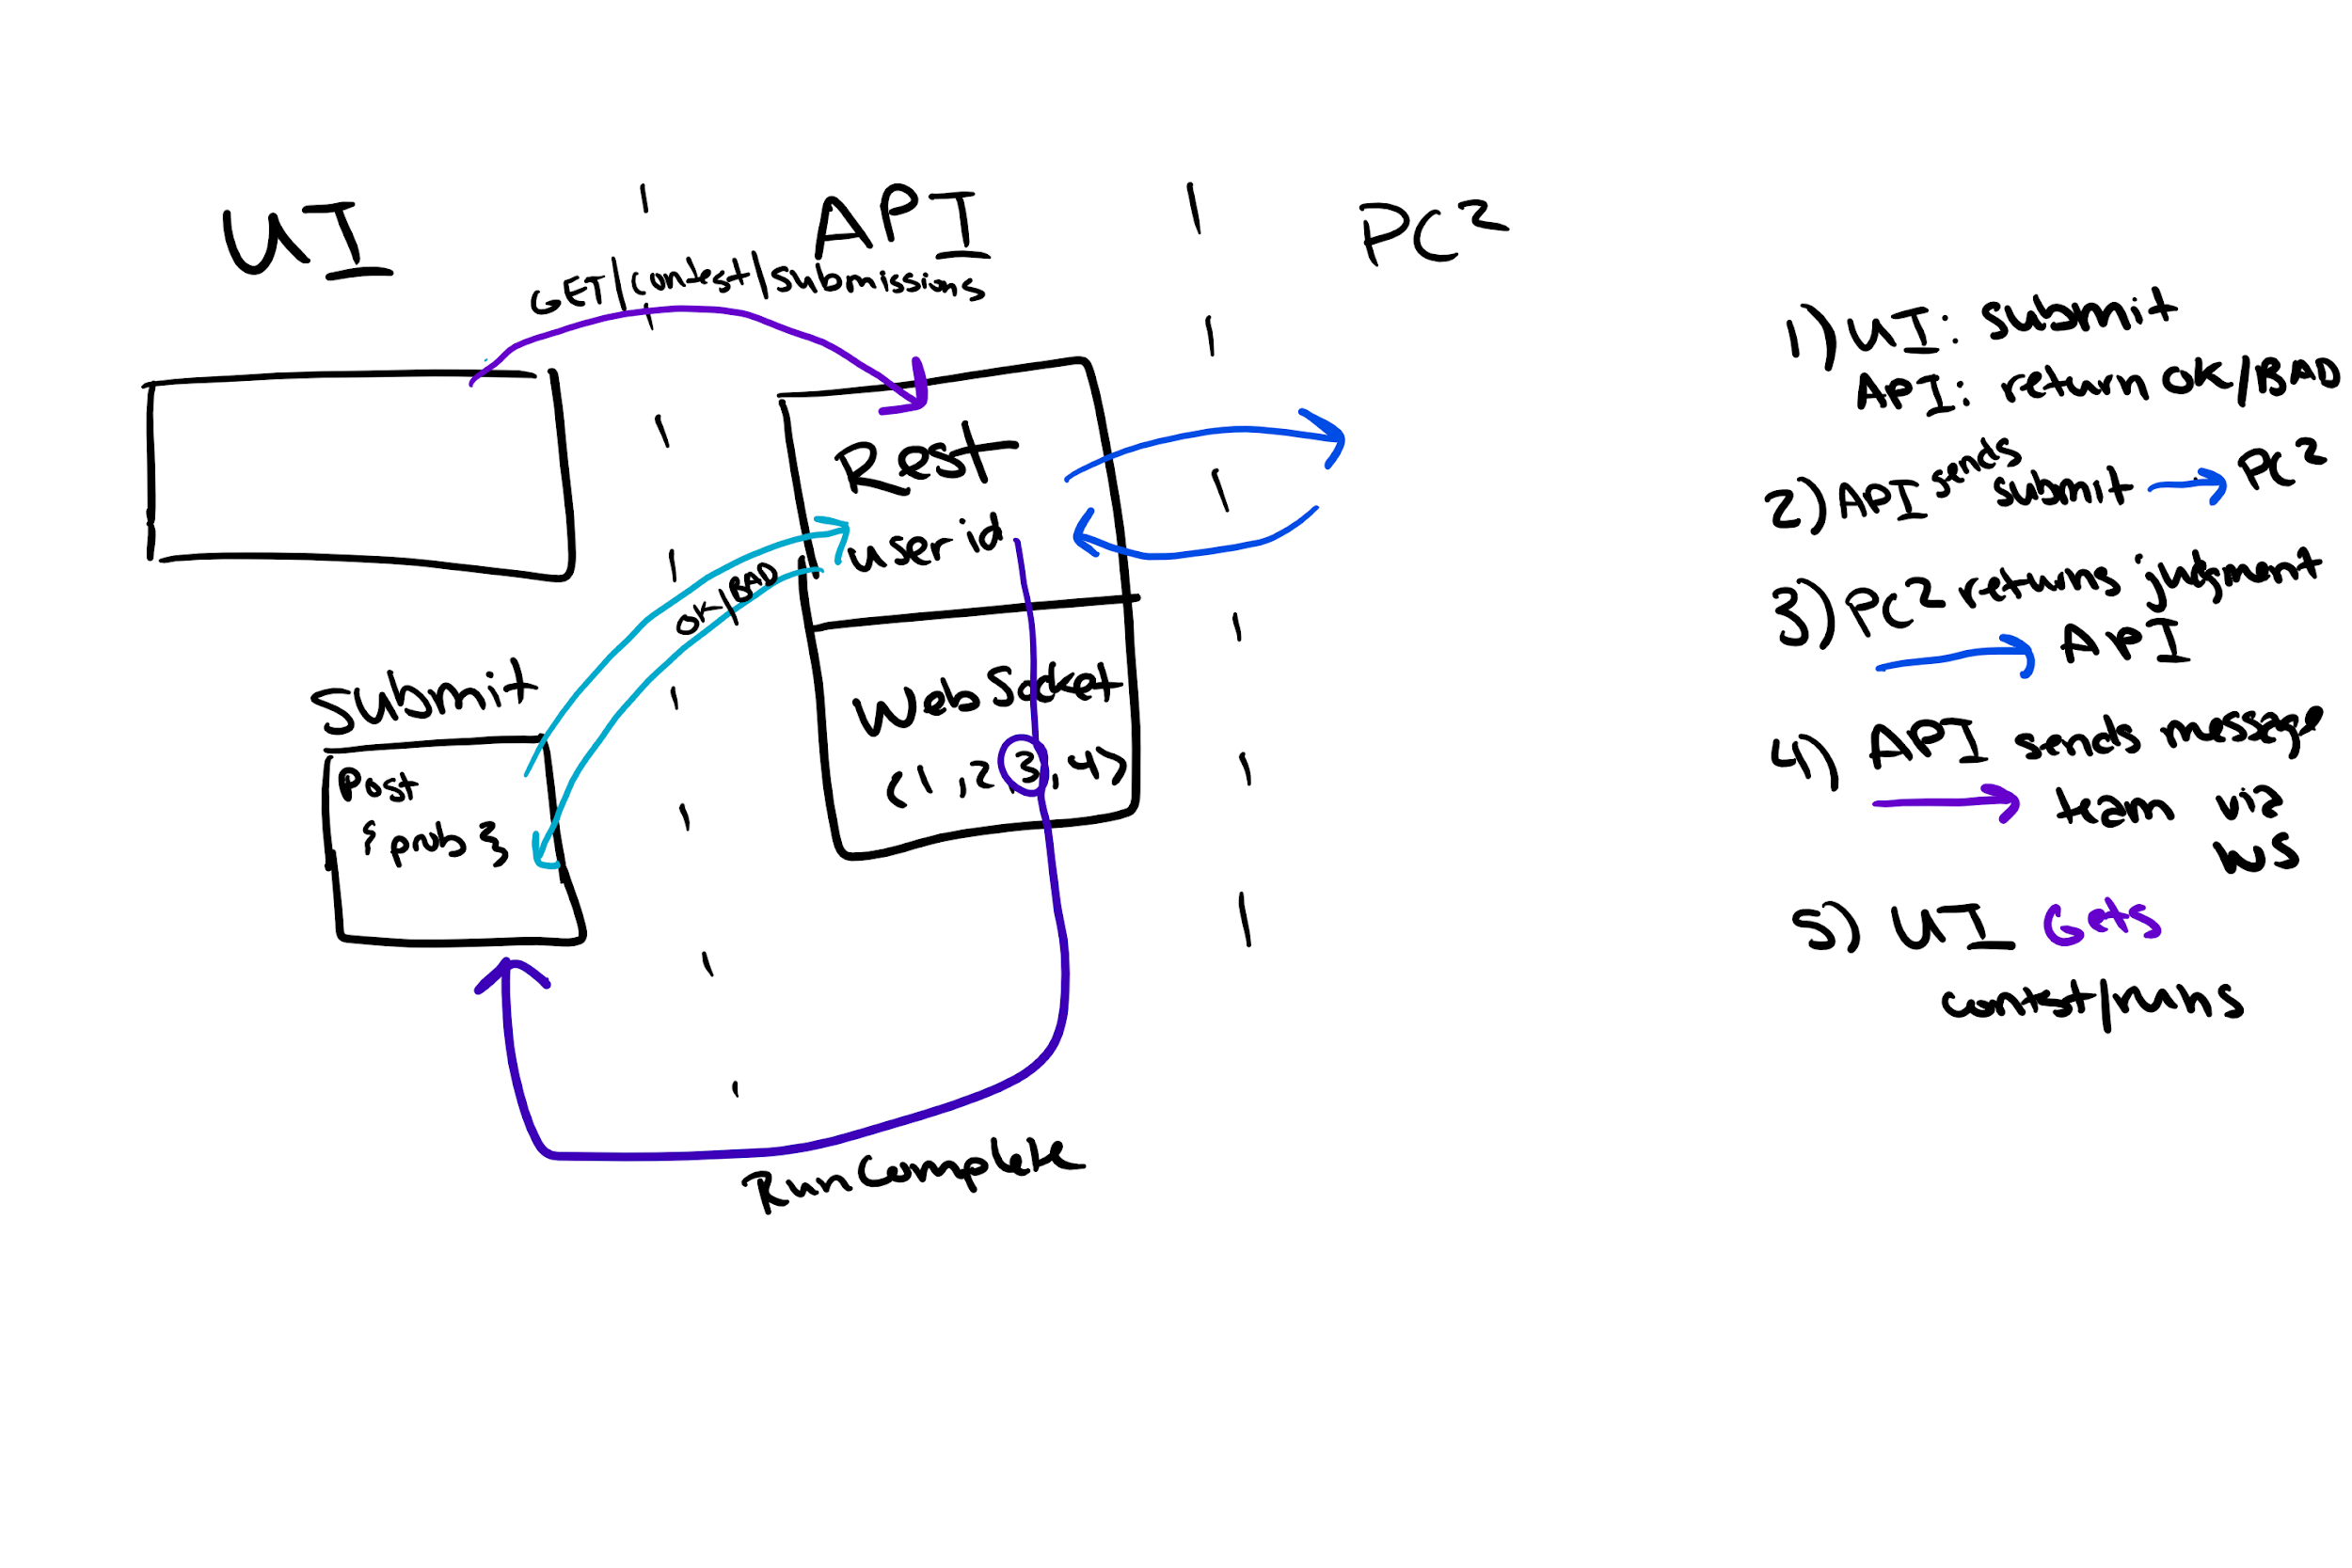 UI
API
PC²
GET/contest/submissions
Rest
userid
OK/BAD
Submit
Post
{prob}
Web Socket
(1,2,3,4)
RunComplete
1) UI: submit
API: return OK/BAD
2) API sends submit → PC²
3) PC² returns judgment
→ API
4) API sends message
→ team via
WS
5) UI Gets
contest/runs